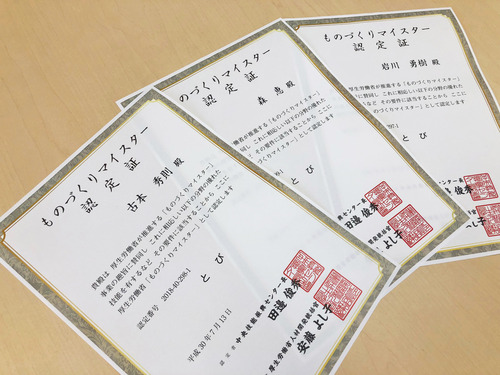 ものづくりマイスター
認定証
古本 秀則 殿
貴殿は 厚生労働省が推進する「ものづくりマイスター」
事業の趣旨に賛同し これに相応しい以下の分野の優れた
技能を有するなど その要件に該当することから ここに
厚生労働省「ものづくりマイスター」として認定します
とび
認定番号 2018-40-298-1
平成30年7月13日
認定者 中央技能振興センター長
田邉 俊秀
厚生労働省人材開発統括官
安藤 よし子
ものづくりマイスター
認定証
森 恵 殿
労働省が推進する「ものづくりマイスター」
同し これに相応しい以下の分野の優れた
など その要件に該当することから ここに
づくりマイスター」として認定します
とび
興センター長
田邉 俊秀
開発統括官
よし子
ものづくりマイスター
認定証
岩川 勇樹 殿
が推進する「ものづくりマイスター」
これに相応しい以下の分野の優れた
その要件に該当することから ここに
マイスター」として認定します
とび